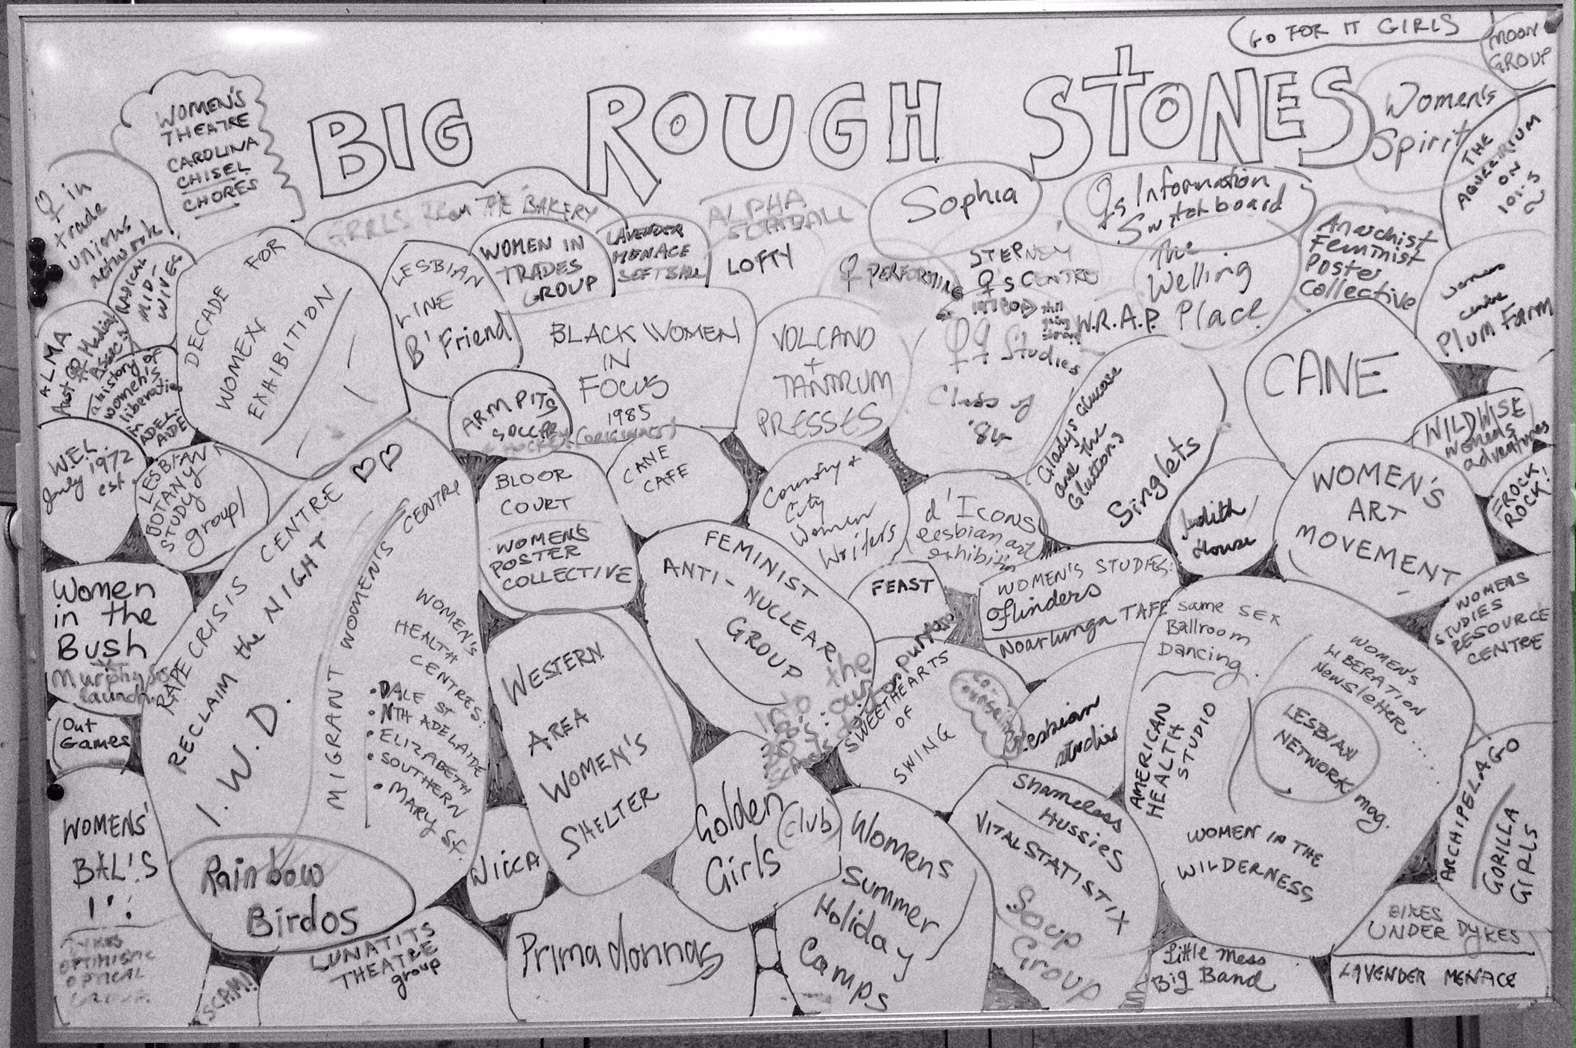 GO FOR IT GIRLS
MOON
GROUP
BIG ROUGH STONES
WOMEN'S
THEATRE
CAROLINA
CHISEL
CHORES
Women's
Spirit
THE
AQUEERIUM
ON
101.5
♀ in
trade
unions
network!
GRRLS FROM THE BAKERY
WOMEN IN
TRADES
GROUP
LAVENDER
MENACE
SOFTBALL
ALPHA
SOFTBALL
LOFTY
Sophia
♀s Information
Switchboard
Anarchist
Feminist
Poster
Collective
♀ PERFORMING
STEPNEY
♀'s CENTRE
still
going
strong
♀♀ Studies
Class of
'84
W.R.A.P.
The
Welling
Place
women's
centre
Plum Farm
RADICAL
MID-
WIVES
ALMA
Aust ♀ Medical
Assoc'n
a history of
women's
liberation
in
ADEL-
AIDE
DECADE
FOR
WOMEN
EXHIBITION
LESBIAN
LINE
B'Friend
BLACK WOMEN
IN
FOCUS
1985
ARMPITS
SOCCER
HOCKEY (ORIGINALLY)
VOLCANO
+
TANTRUM
PRESSES
Gladys Glucose
and the
Gluttons
Singlets
CANE
WILDWISE
women's
adventures
FROCK
ROCK!
W.E.L.
July 1972
est.
LESBIAN
BOTANY
STUDY
group!
RAPE CRISIS CENTRE
RECLAIM the NIGHT
I.W.D.
MIGRANT WOMEN'S CENTRE
WOMEN'S
HEALTH
CENTRES:
• DALE ST
• NTH ADELAIDE
• ELIZABETH
• SOUTHERN
• MARY St.
BLOOR
COURT
WOMENS
POSTER
COLLECTIVE
CANE
CAFE
Country +
City
Women
Writers
d'Icons
lesbian art
exhibition
FEAST
Judith
House
WOMEN'S
ART
MOVEMENT
WOMENS
STUDIES
RESOURCE
CENTRE
WOMEN'S STUDIES:
Flinders
Noarlunga TAFE
Women
in the
Bush
Murphy Sisters
launch
Out
Games
WESTERN
AREA
WOMEN'S
SHELTER
FEMINIST
ANTI-NUCLEAR
GROUP
into the
80's: our
SWEETHEARTS
OF
SWING
co-
counselling
Lesbian
studies
same SEX
Ballroom
Dancing
AMERICAN
HEALTH
STUDIO
WOMEN'S
LIBERATION
Newsletter...
LESBIAN
NETWORK mag.
WOMEN IN THE
WILDERNESS
ARCHIPELAGO
GORILLA
GIRLS
WOMENS'
BAL!'S
Rainbow
Birdos
Wicca
Golden
Girls
Club
Womens
Summer
Holiday
Camps
Shameless
Hussies
VITALSTATISTIX
Soup
Group
DYKES
OPTIMISTIC
OPTICAL
SCAM!
LUNATITS
THEATRE
group
Prima donnas
Little Mess
Big Band
BIKES
UNDER DYKES
LAVENDER MENACE